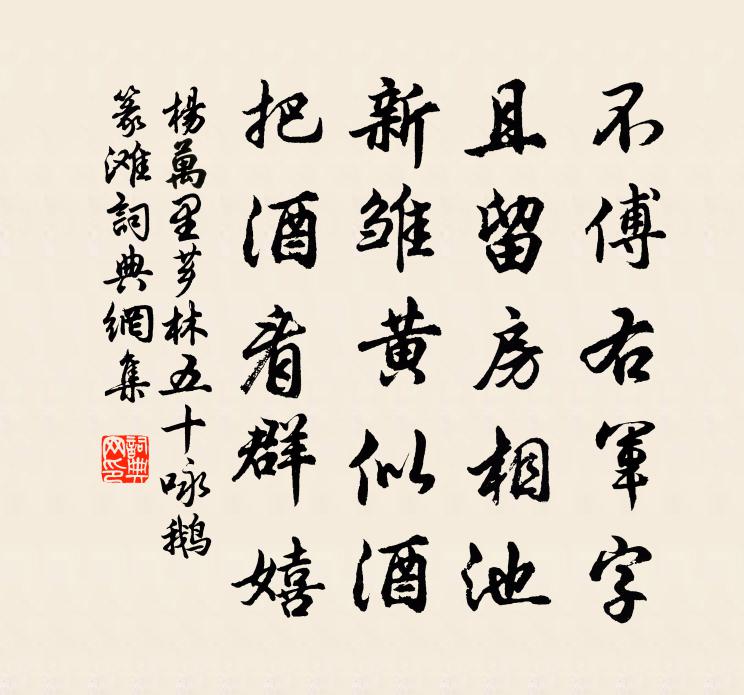 不傅右軍字
且留房相池
新雏黄似酒
把酒看群嬉
楊萬里芗林五十咏鵝
篆滩詞典網集
詞典网印